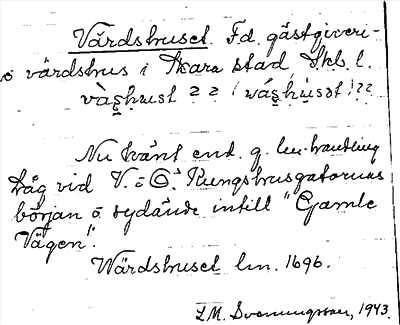 Värdshuset. Fd. gästgiveri-
o värdshus i Skara stad, Skb. l.
Nu känt end. g. lm-handling
låg vid V. o Ö. Kungshusgatornas
början o. sydände intill "Gamle
Vägen".
Wärdshuset lm. 1696.
L.M. Svenungsson, 1943.